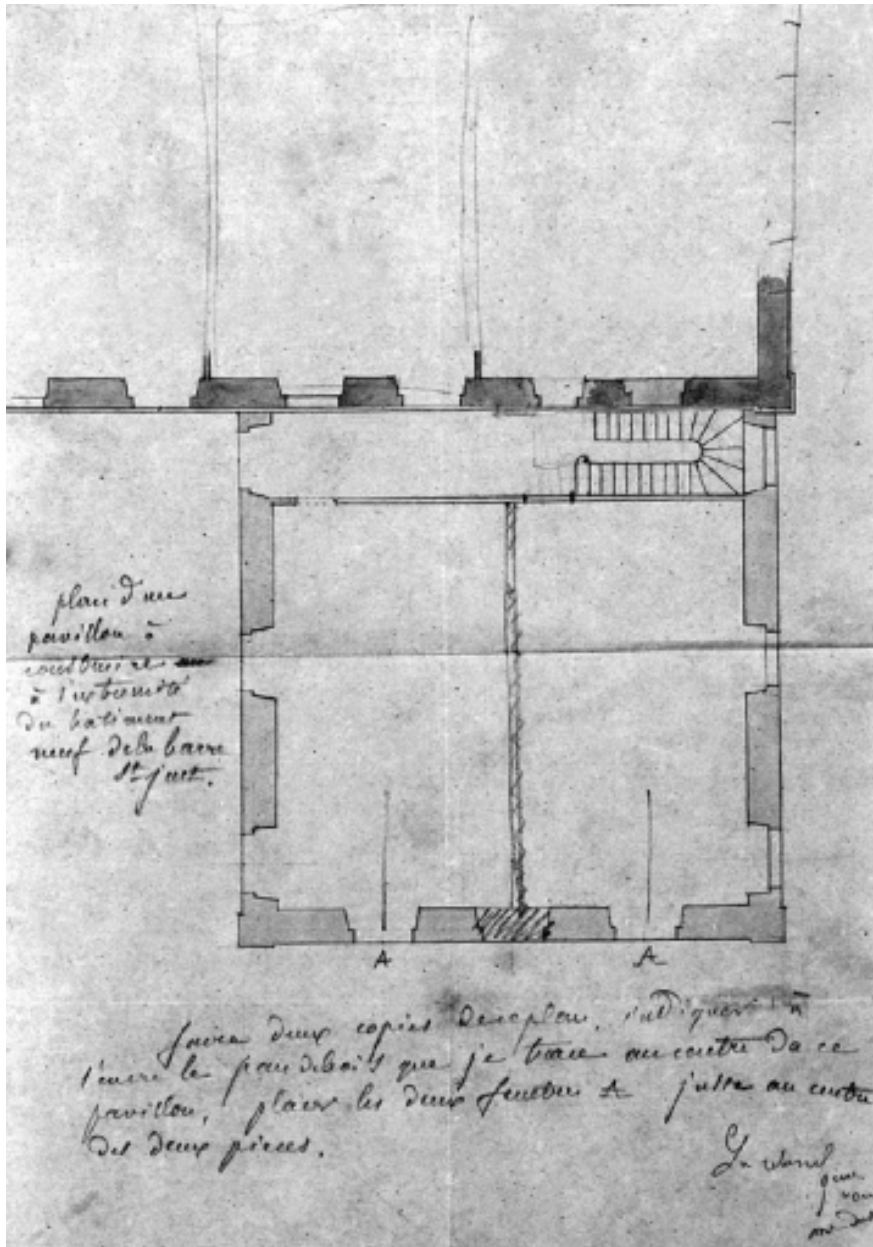 plan d'un
pavillon à
construire
à l'extremité
du batiment
neuf de la barre
St. just.
A A
faire deux copies de ce plan, indiquer à
l'encre le pan de bois que je trace au centre de ce
pavillon, placer les deux fenetres A juste au centre
des deux pieces.